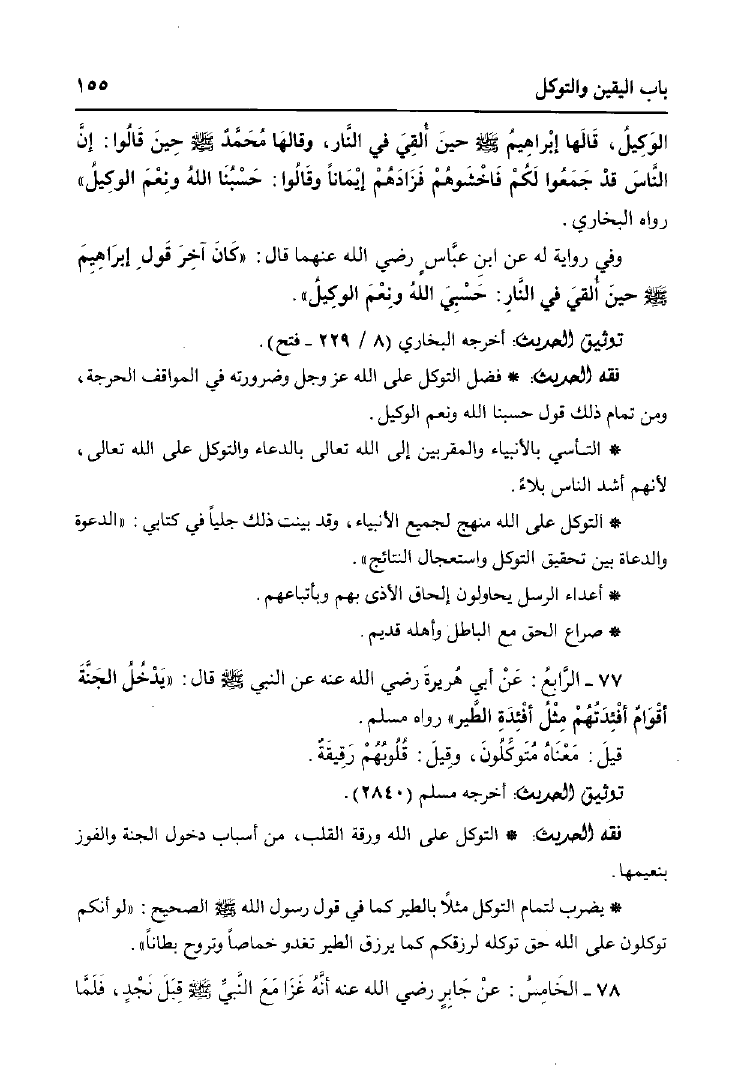 باب اليقين والتوكل ١٥٥
الوَكيلُ، قَالَها إبْراهيمُ ﷺ حينَ أُلقِيَ في النَّار، وقالهَا مُحَمَّدٌ ﷺ حِينَ قَالُوا: إنَّ
النَّاسَ قدْ جَمَعُوا لَكُمْ فَاخْشَوهُمْ فَزَادَهُمْ إيْمَاناً وقَالُوا: حَسْبُنَا اللهُ ونعْمَ الوكيلُ»
رواه البخاري.
وفي رواية له عن ابنِ عبَّاسٍ رضي الله عنهما قال: «كَانَ آخِرَ قَولِ إبْرَاهِيمَ
ﷺ حينَ أُلقيَ في النَّارِ: حَسْبِيَ اللهُ ونِعْمَ الوكيلُ».
توثيق الحديث: أخرجه البخاري (٨ / ٢٢٩ - فتح).
فقه الحديث: * فضل التوكل على الله عز وجل وضرورته في المواقف الحرجة،
ومن تمام ذلك قول حسبنا الله ونعم الوكيل.
* التأسي بالأنبياء والمقربين إلى الله تعالى بالدعاء والتوكل على الله تعالى،
لأنهم أشد الناس بلاءً.
* التوكل على الله منهج لجميع الأنبياء، وقد بينت ذلك جلياً في كتابي: «الدعوة
والدعاة بين تحقيق التوكل واستعجال النتائج».
* أعداء الرسل يحاولون إلحاق الأذى بهم وبأتباعهم.
* صراع الحق مع الباطل وأهله قديم.
٧٧ - الرَّابعُ: عَنْ أبي هُريرةَ رضي الله عنه عن النبي ﷺ قال: «يَدْخُلُ الجنَّةَ
أقْوَامٌ أفْئِدَتُهُمْ مِثْلُ أفْئِدَةِ الطَّير» رواه مسلم.
قيلَ: مَعْنَاهُ مُتَوكِّلُونَ، وقِيلَ: قُلُوبُهُمْ رَقِيقَةٌ.
توثيق الحديث: أخرجه مسلم (٢٨٤٠).
فقه الحديث: * التوكل على الله ورقة القلب، من أسباب دخول الجنة والفوز
بنعيمها.
* يضرب لتمام التوكل مثلاً بالطير كما في قول رسول الله ﷺ الصحيح: «لو أنكم
توكلون على الله حق توكله لرزقكم كما يرزق الطير تغدو خماصاً وتروح بطاناً».
٧٨ - الخَامِسُ: عنْ جَابِرٍ رضي الله عنه أنَّهُ غَزَا مَعَ النَّبيِّ ﷺ قِبَلَ نَجْدٍ، فَلَمَّا